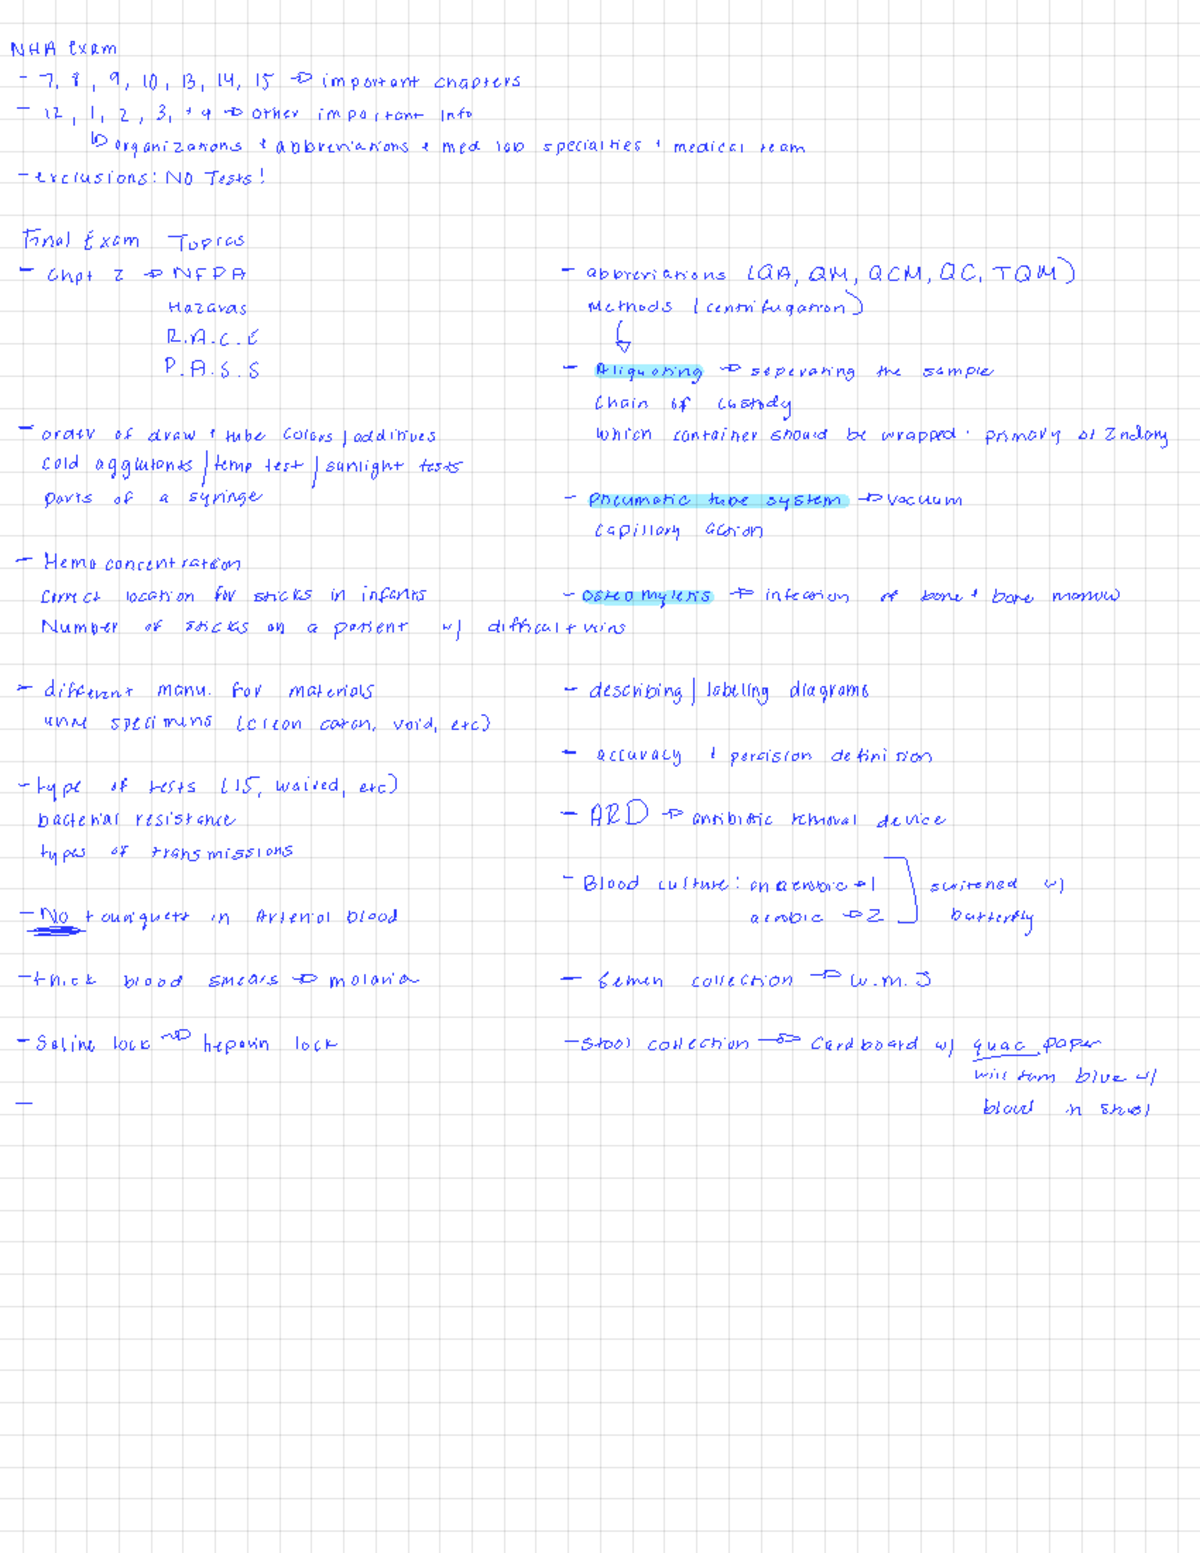 NHA Exam
- 7, 8, 9, 10, 13, 14, 15 → important chapters
- 12, 1, 2, 3, + 4 → other important info
↳ organizations + abbreviations + med lab specialties + medical team
- exclusions: NO Tests!
Final Exam Topics
- Chpt 2 → NFPA
Hazards
R.A.C.E
P.A.S.S
- order of draw + tube colors / additives
cold agglutants / temp test / sunlight tests
parts of a syringe
- Hemoconcentration
correct location for sticks in infants
Number of sticks on a patient w/ difficult veins
- different manu. for materials
urine specimens (clean catch, void, etc)
- type of tests (15, waived, etc)
bacterial resistance
types of transmissions
- No tourniquett in Arterial blood
- thick blood smears → malaria
- Saline lock → heparin lock
-
- abbreviations (QA, QM, QCM, QC, TQM)
Methods (centrifugation)
- Aliquoting → seperating the sample
Chain of custody
which container should be wrapped · primary or 2ndary
- pneumatic tube system → vacuum
capillary action
- osteomyletis → infection of bone + bone marrow
- describing / labeling diagrams
- accuracy + percision definition
- ARD → antibiotic removal device
- Blood culture: anaerobic → 1
aerobic → 2
switched w/
butterfly
- Semen collection → W.M.S
- Stool collection → Cardboard w/ quac paper
will turn blue w/
blood in stool